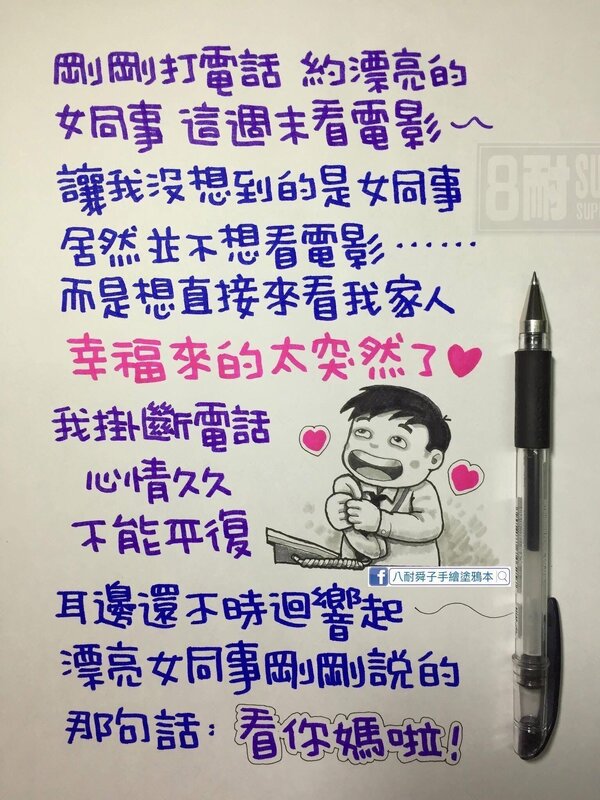 剛剛打電話 約漂亮的
女同事 這週末看電影～
讓我沒想到的是女同事
居然並不想看電影……
而是想直接來看我家人
幸福來的太突然了♥
我掛斷電話
心情久久
不能平復
八耐舜子手繪塗鴉本
耳邊還不時迴響起
漂亮女同事剛剛説的
那句話：看你媽啦！
8耐